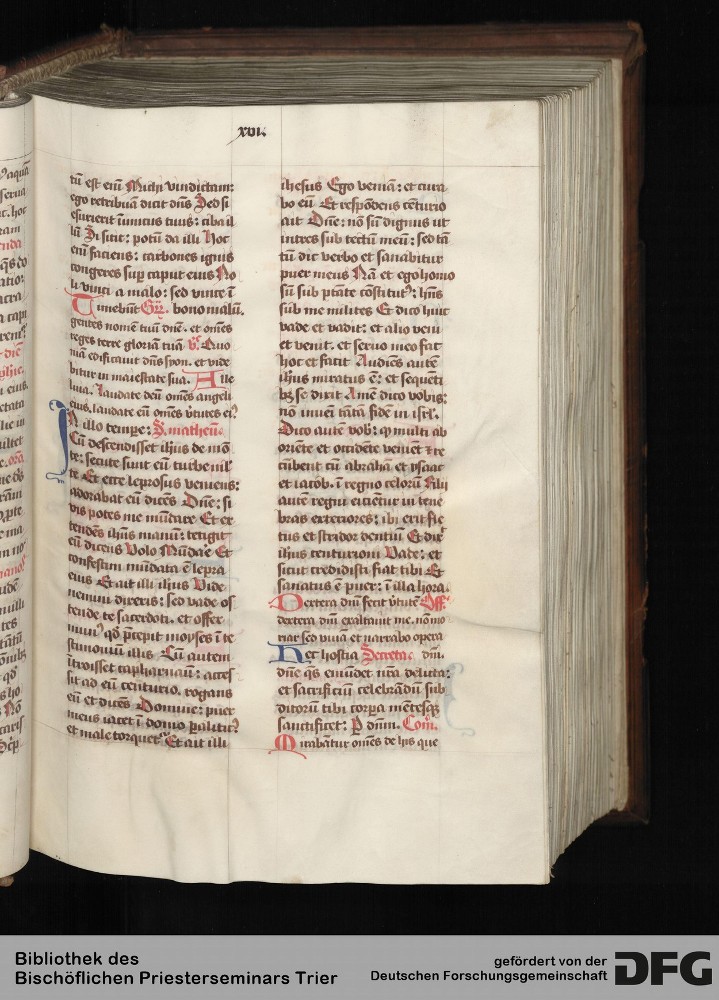 xvi.
tū est enī Michi vindictam:
ego retribuā dicit dn̄s Sed si
esurierit inimicus tuus: ciba il
lū Si sitit: potū da illi Hoc
enī faciens: carbones ignis
congeres sup̄ caput eius No
li vinci a malo: sed vince ī
Timebūt Gr̄. bono malū.
gentes nomē tuū dn̄e. et om̄es
reges terre gloriā tuā v̄. Quo
niā edificauit dn̄s syon. et vide
bitur in maiestate sua. Alle
luia. Laudate deū om̄es angeli
eius. laudate eū om̄es v̄tutes ei⁹
In illo tempr̄e: S. matheū.
Cū descendisset ih̄us de mō
te: secute sunt eū turbe ml̄
te Et ecce leprosus veniens:
adorabat eū dicēs Dn̄e: si
vis potes me mūdare Et ex
tendēs ih̄us manū: tetigit
eū dicens Volo Mūdare Et
confestim mūdata ē lepra
eius Et ait illi ih̄us Vide
nemini dixeris: sed vade os
tende te sacerdoti. et offer
mun⁹ qd̄ p̄cepit moyses ī te
stimoniū illis Cū autem
ītroisset capharnaū: acces
sit ad eū centurio. rogans
eū et dicēs Domine: puer
meus iacet ī domo paliticꝰ
et male torquet̄ Et ait illi
ihesus Ego veniā: et cura
bo eū Et respōdens cēturio
ait Dn̄e: nō sū dignus ut
intres sub tectū meū: sed tā
tū dic verbo et sanabitur
puer meus Nā et ego homo
sū sub ptāte cōstitut⁹: hn̄s
sub me milites Et dico huic
vade et vadit: et alio veni
et venit. et seruo meo fac
hoc et facit Audiēs autē
ih̄us miratus ē: et sequēti
bꝫ se dixit Amē dico vobis:
nō inueni tātā fidē in isrl̄.
Dico autē vob: ꝙ multi ab
oriēte et occidēte veniēt ⁊ re
cūbent cū abrahā et ysaac
et iacob. ī regno celorū Filij
autē regni eicientur in tene
bras exteriores: ibi erit fle
tus et stridor dentiū Et dix̄
ih̄us centurioni Vade: et
sicut credidisti fiat tibi Et
sanatus ē puer: ī illa hora.
Dextera dn̄i fecit v̄tutē Off̄.
dextera dn̄i exaltauit me. nō mo
riar sed viuā et narrabo opera
Hec hostia Secreta. dn̄i.
dn̄e qs̄ emūdet nr̄a delicta:
et sacrificiū celebrādū sub
ditorū tibi corpa mētesqꝫ
sanctificet: P̄ dn̄m. Com̄.
Mirabātur om̄es de his que
Bibliothek des
Bischöflichen Priesterseminars Trier
gefördert von der
Deutschen Forschungsgemeinschaft
DFG